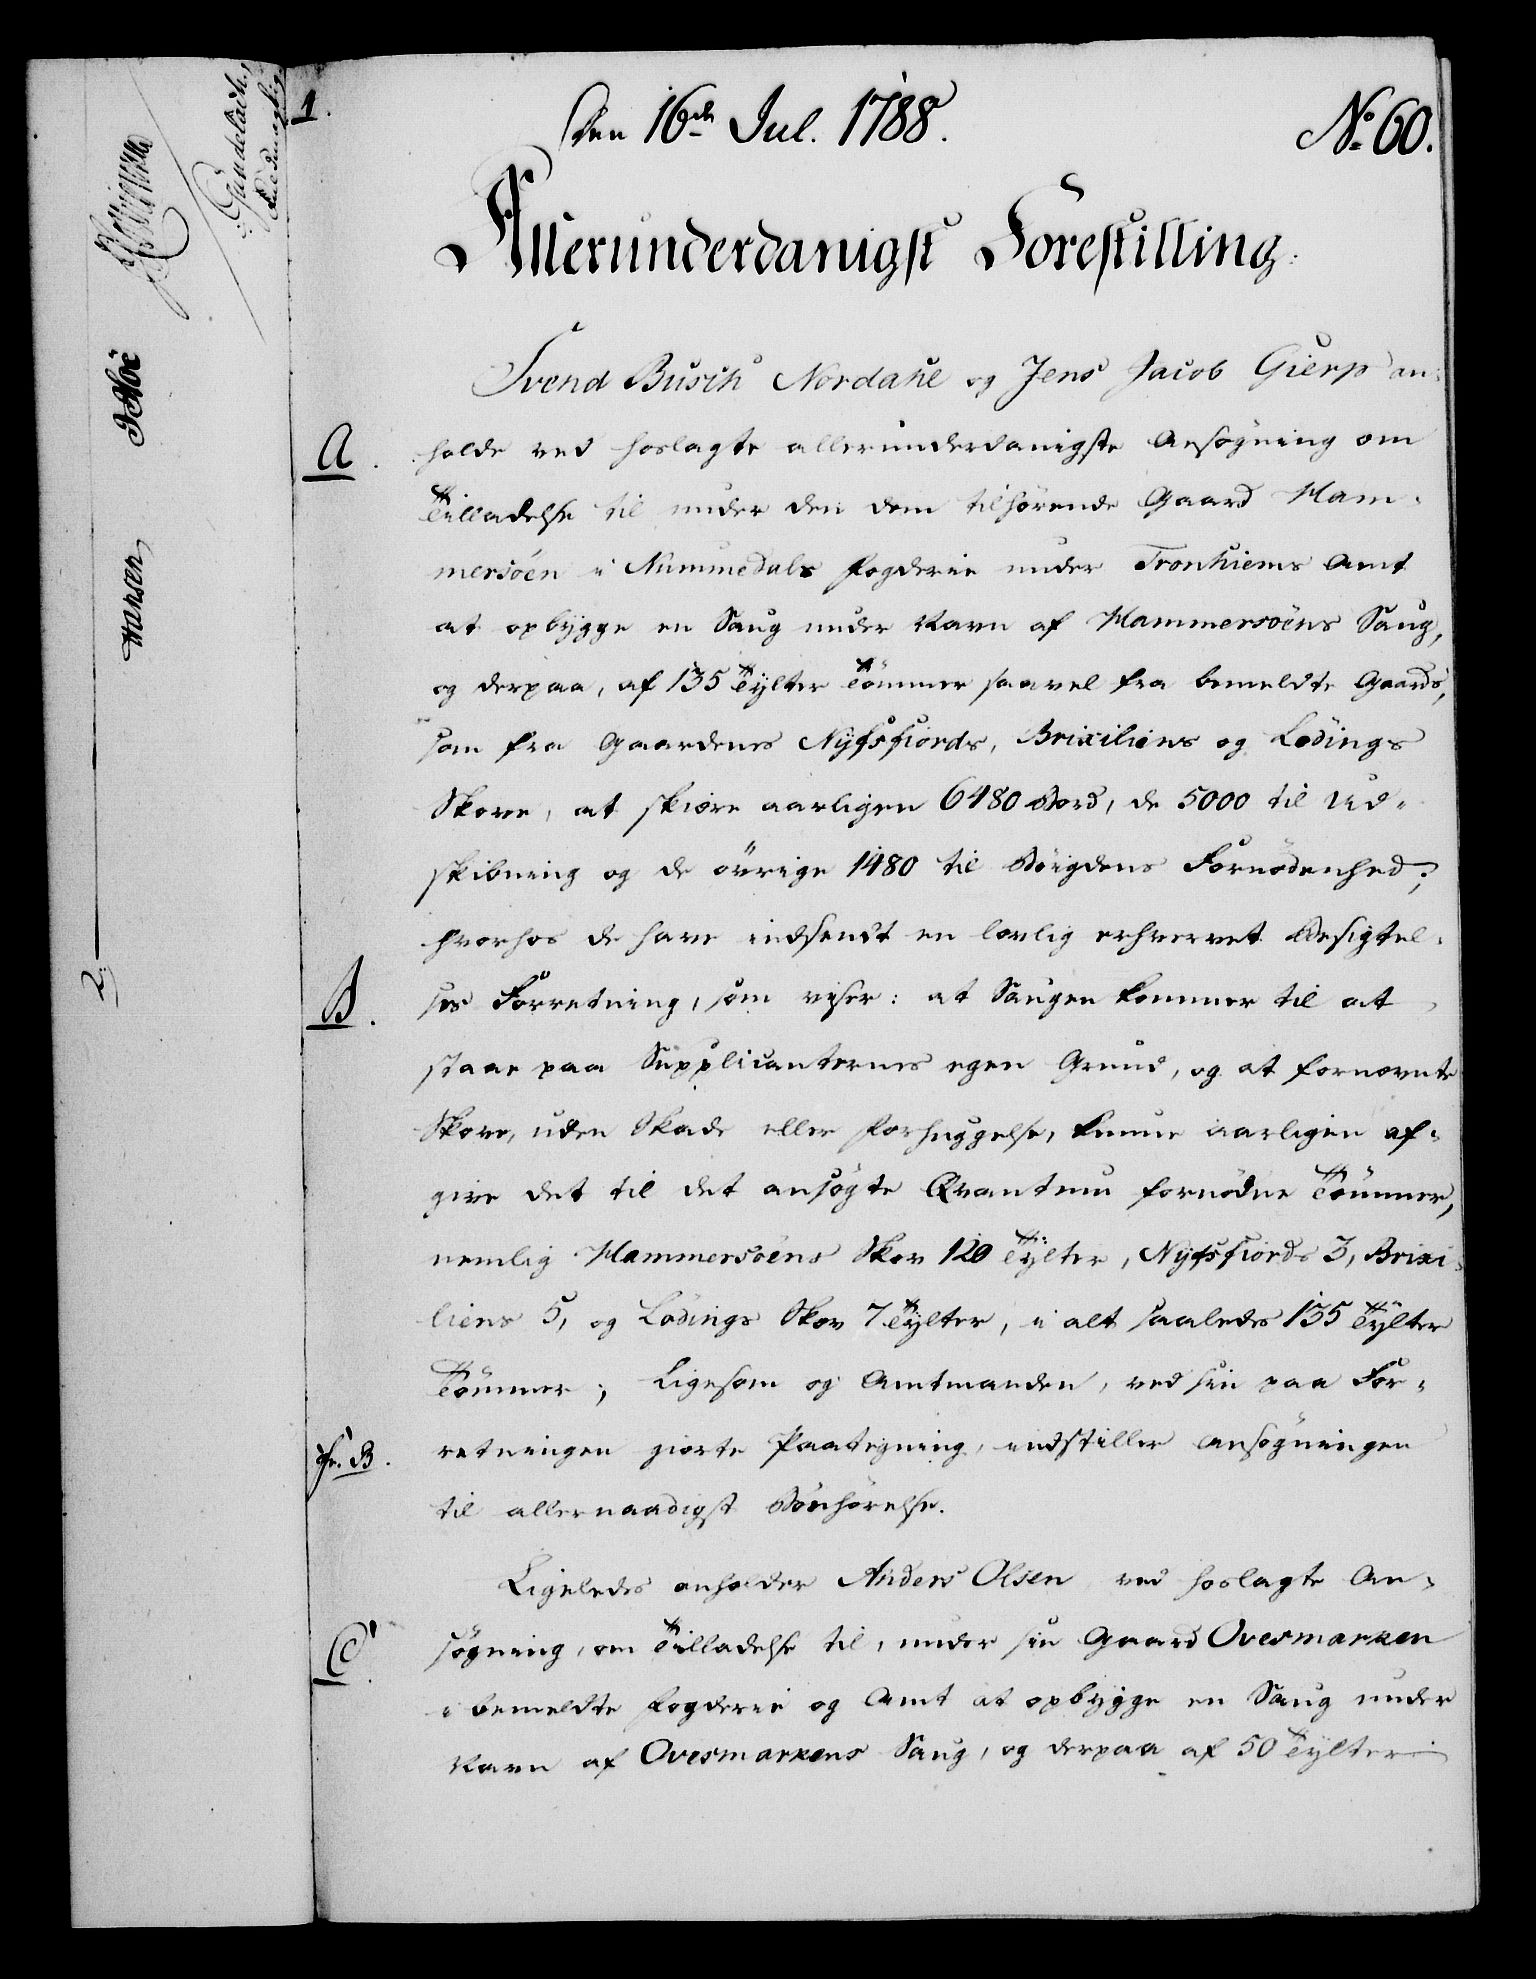 1.
Den 16de Jul. 1788.
No 60.
Allerunderdanigst Forestilling.
Svend Busch Nordahl og Jens Jacob Gierp an-
A.
holde ved hoslagte allerunderdanigste Ansøgning om
Tilladelse til under den dem tilhørende Gaard Ham-
mersöen i Nummedals Fogderie under Tronhiems Amt
at opbygge en Saug under Navn af Hammersöens Saug,
og derpaa, af 135 Tylter Tømmer saavel fra bemeldte Gaards,
som fra Gaardenes Nyfsfiords, Brixiliens og Lödings
Skove, at skiære aarligen 6480 Bord, de 5000 til Ud-
skibning og de övrige 1480 til Bøigdens Fornødenhed;
hvorhos de have indsendt en lovlig erhvervet Besigtel-
B.
ses Forretning, som viser: at Saugen kommer til at
staae paa Supplicanternes egen Grund, og at fornævnte
Skove, uden Skade eller Forhuggelse, kunne aarligen af-
give det til det ansøgte Qvantum fornødne Tømmer,
nemlig Hammersöens Skov 120 Tylter, Nyfsfiords 3, Brixi-
liens 5, og Lödings Skov 7 Tylter, i alt saaledes 135 Tylter
Tømmer; Ligesom og Amtmanden, ved sin paa For-
cfr. B.
retningen giorte Paategning, indstiller Ansøgningen
til allernaadigst Bönhørelse.
Ligeledes anholder Anders Olsen ved hoslagte An-
C.
søgning, om Tilladelse til, under sin Gaard Ovesmarken
i bemeldte Fogderie og Amt at opbygge en Saug under
Navn af Ovesmarkens Saug, og derpaa af 50 Tylter
Hansen